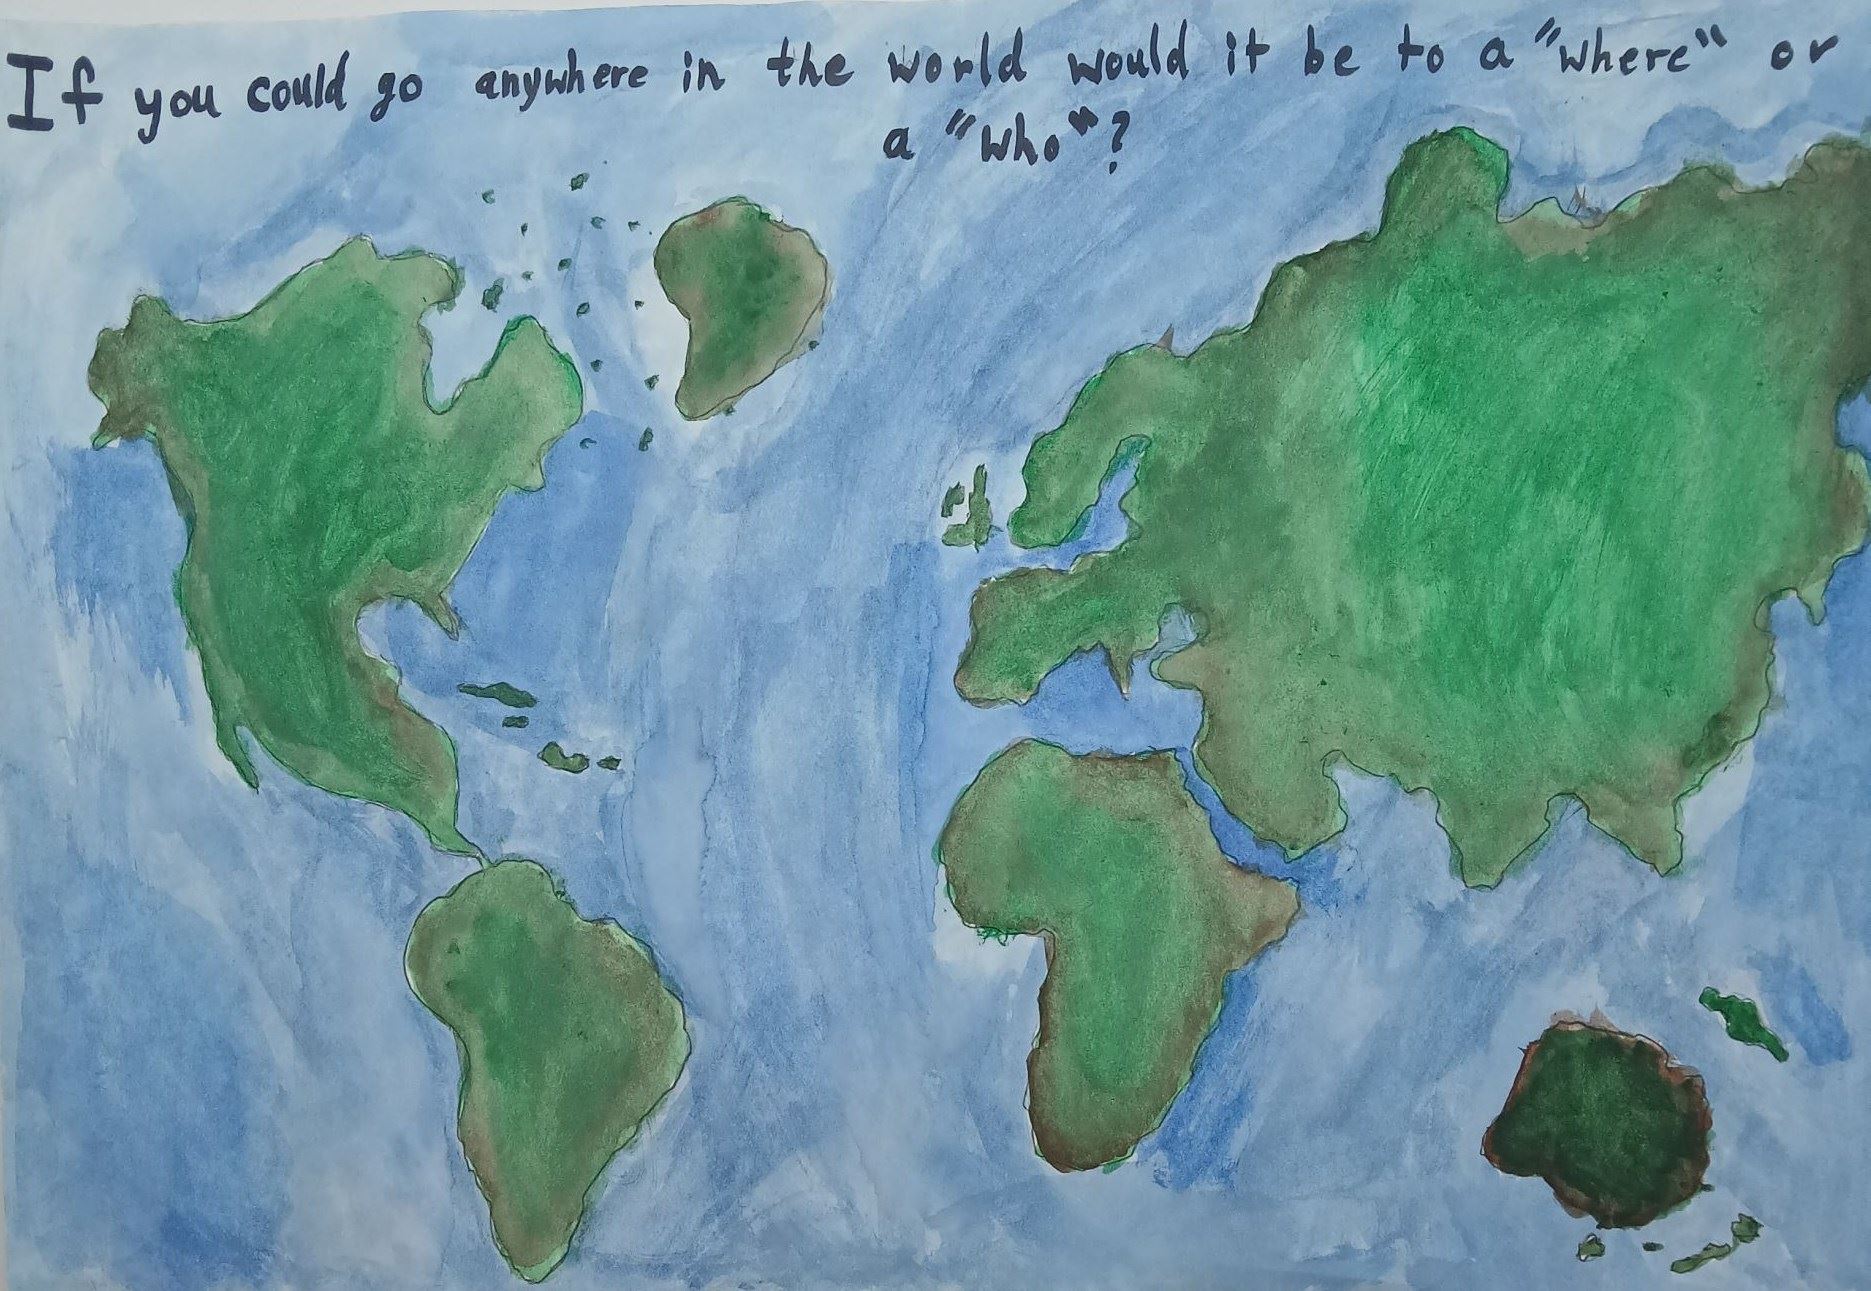 If you could go anywhere in the world would it be to a "where" or
a "who"?